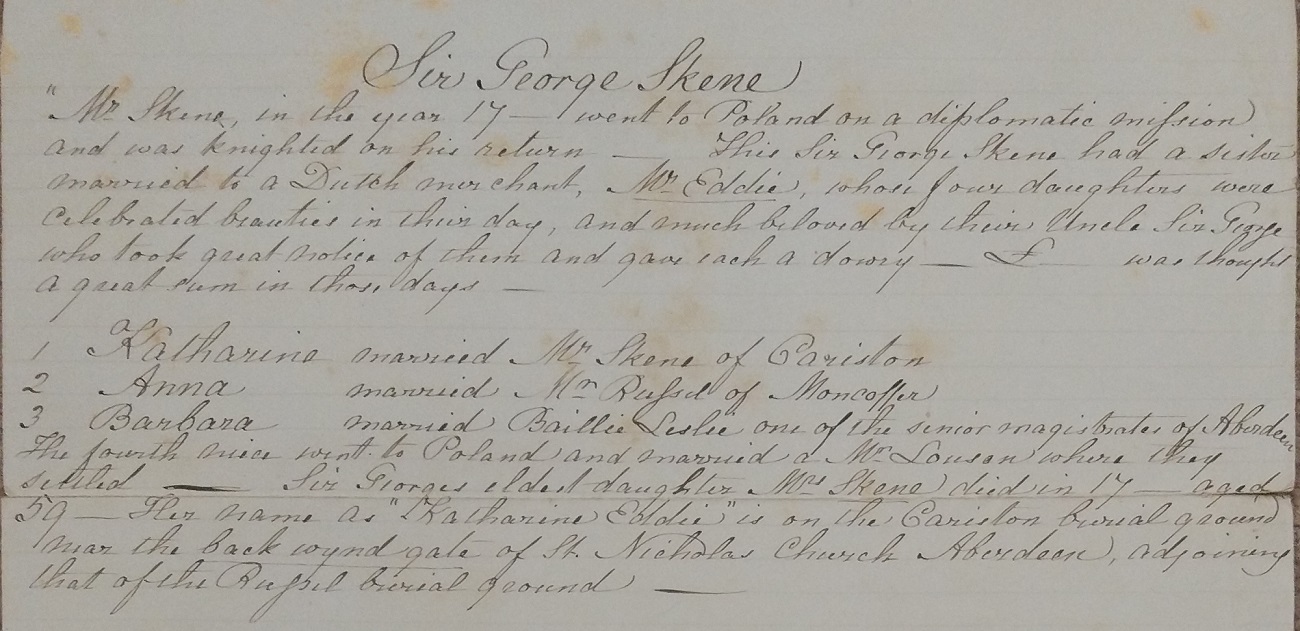 Sir George Skene
"Mr Skene, in the year 17— went to Poland on a diplomatic mission
and was knighted on his return — This Sir George Skene had a sister
married to a Dutch merchant, Mr Eddie, whose four daughters were
celebrated beauties in their day, and much beloved by their Uncle Sir George
who took great notice of them and gave each a dowry — £ — was thought
a great sum in those days —
1 Katharine married Mr Skene of Cariston
2 Anna married Mr Russel of Moncoffer
3 Barbara married Baillie Leslie one of the senior magistrates of Aberdeen
The fourth niece went to Poland and married a Mr Lousen where they
settled — Sir Georges eldest daughter Mrs Skene died in 17— aged
59 — Her name as "Katharine Eddie" is on the Cariston burial ground
near the back wynd gate of St. Nicholas Church Aberdeen, adjoining
that of the Russel burial ground —